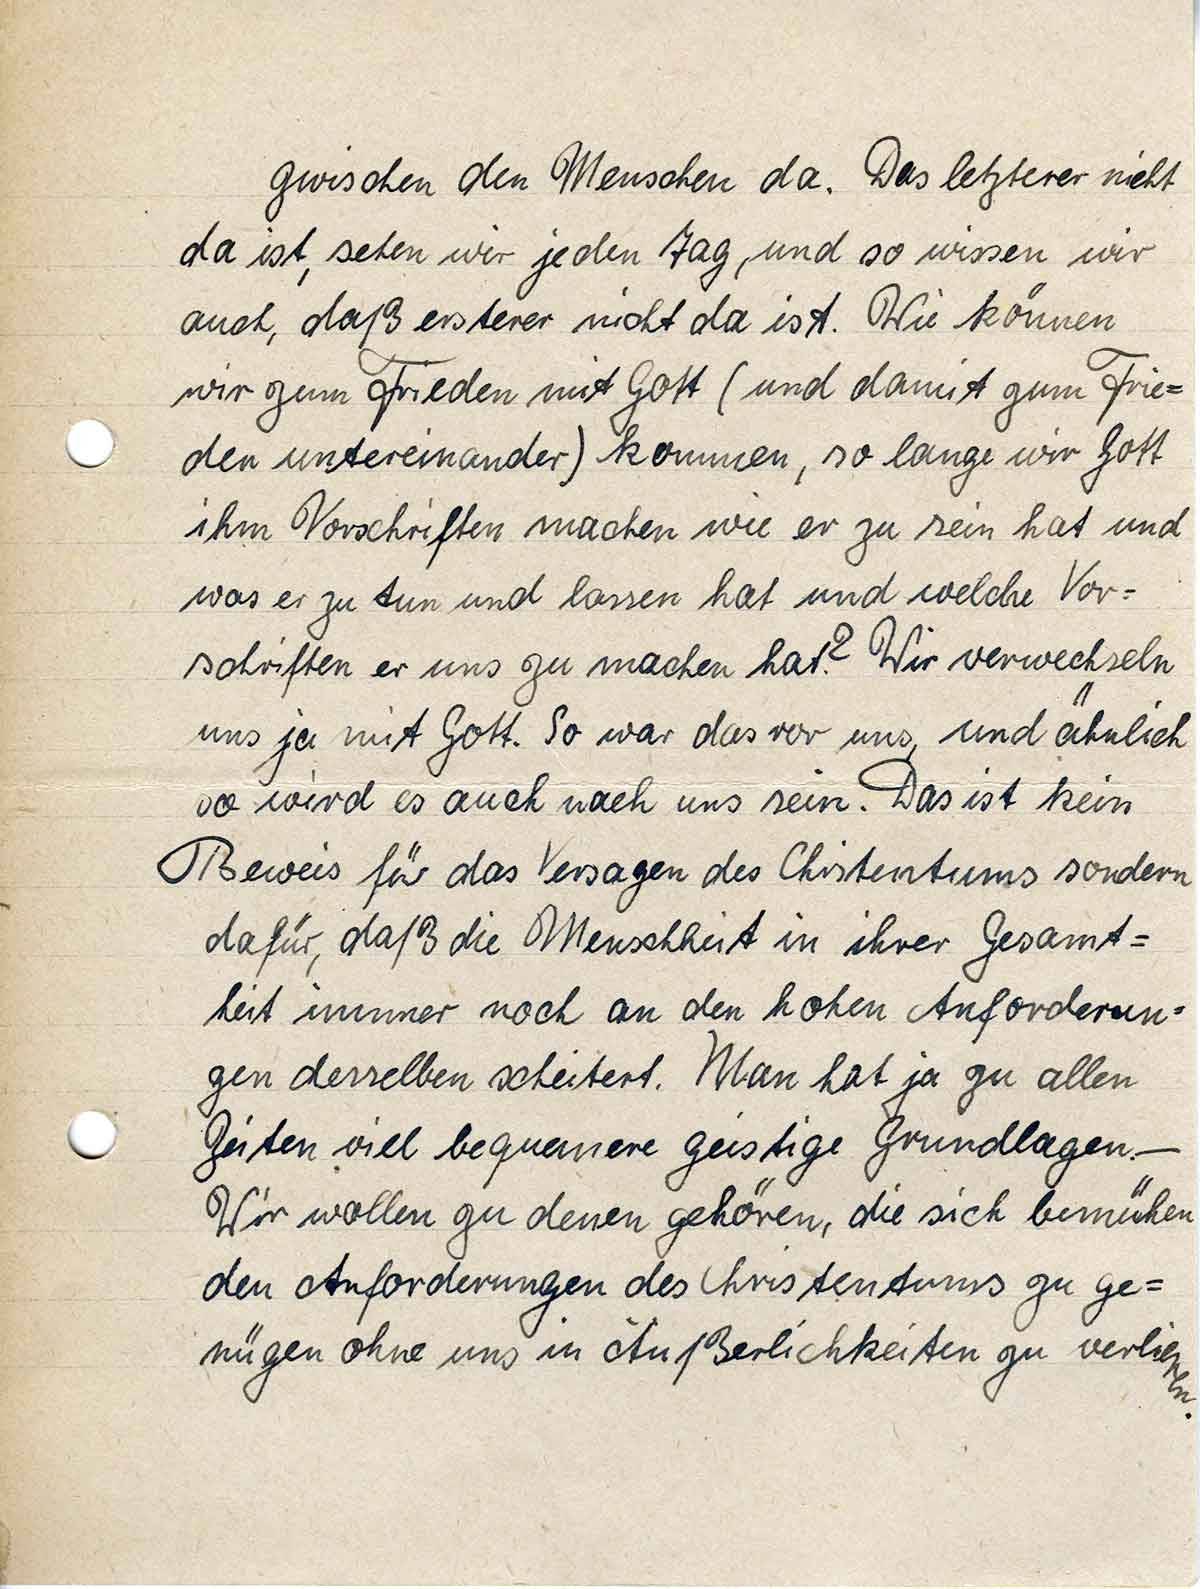 zwischen den Menschen da. Das letzterer nicht
da ist, sehen wir jeden Tag, und so wissen wir
auch, daß ersterer nicht da ist. Wie können
wir zum Frieden mit Gott (und damit zum Frie=
den untereinander) kommen, so lange wir Gott
ihm Vorschriften machen wie er zu sein hat und
was er zu tun und lassen hat und welche Vor=
schriften er uns zu machen hat? Wir verwechseln
uns ja mit Gott. So war das vor uns, und ähnlich
so wird es auch nach uns sein. Das ist kein
Beweis für das Versagen des Christentums sondern
dafür, daß die Menschheit in ihrer Gesamt=
heit immer noch an den hohen Anforderun=
gen desselben scheitert. Man hat ja zu allen
Zeiten viel bequemere geistige Grundlagen.—
Wir wollen zu denen gehören, die sich bemühen
den Anforderungen des Christentums zu ge=
nügen ohne uns in Äußerlichkeiten zu verlieren.